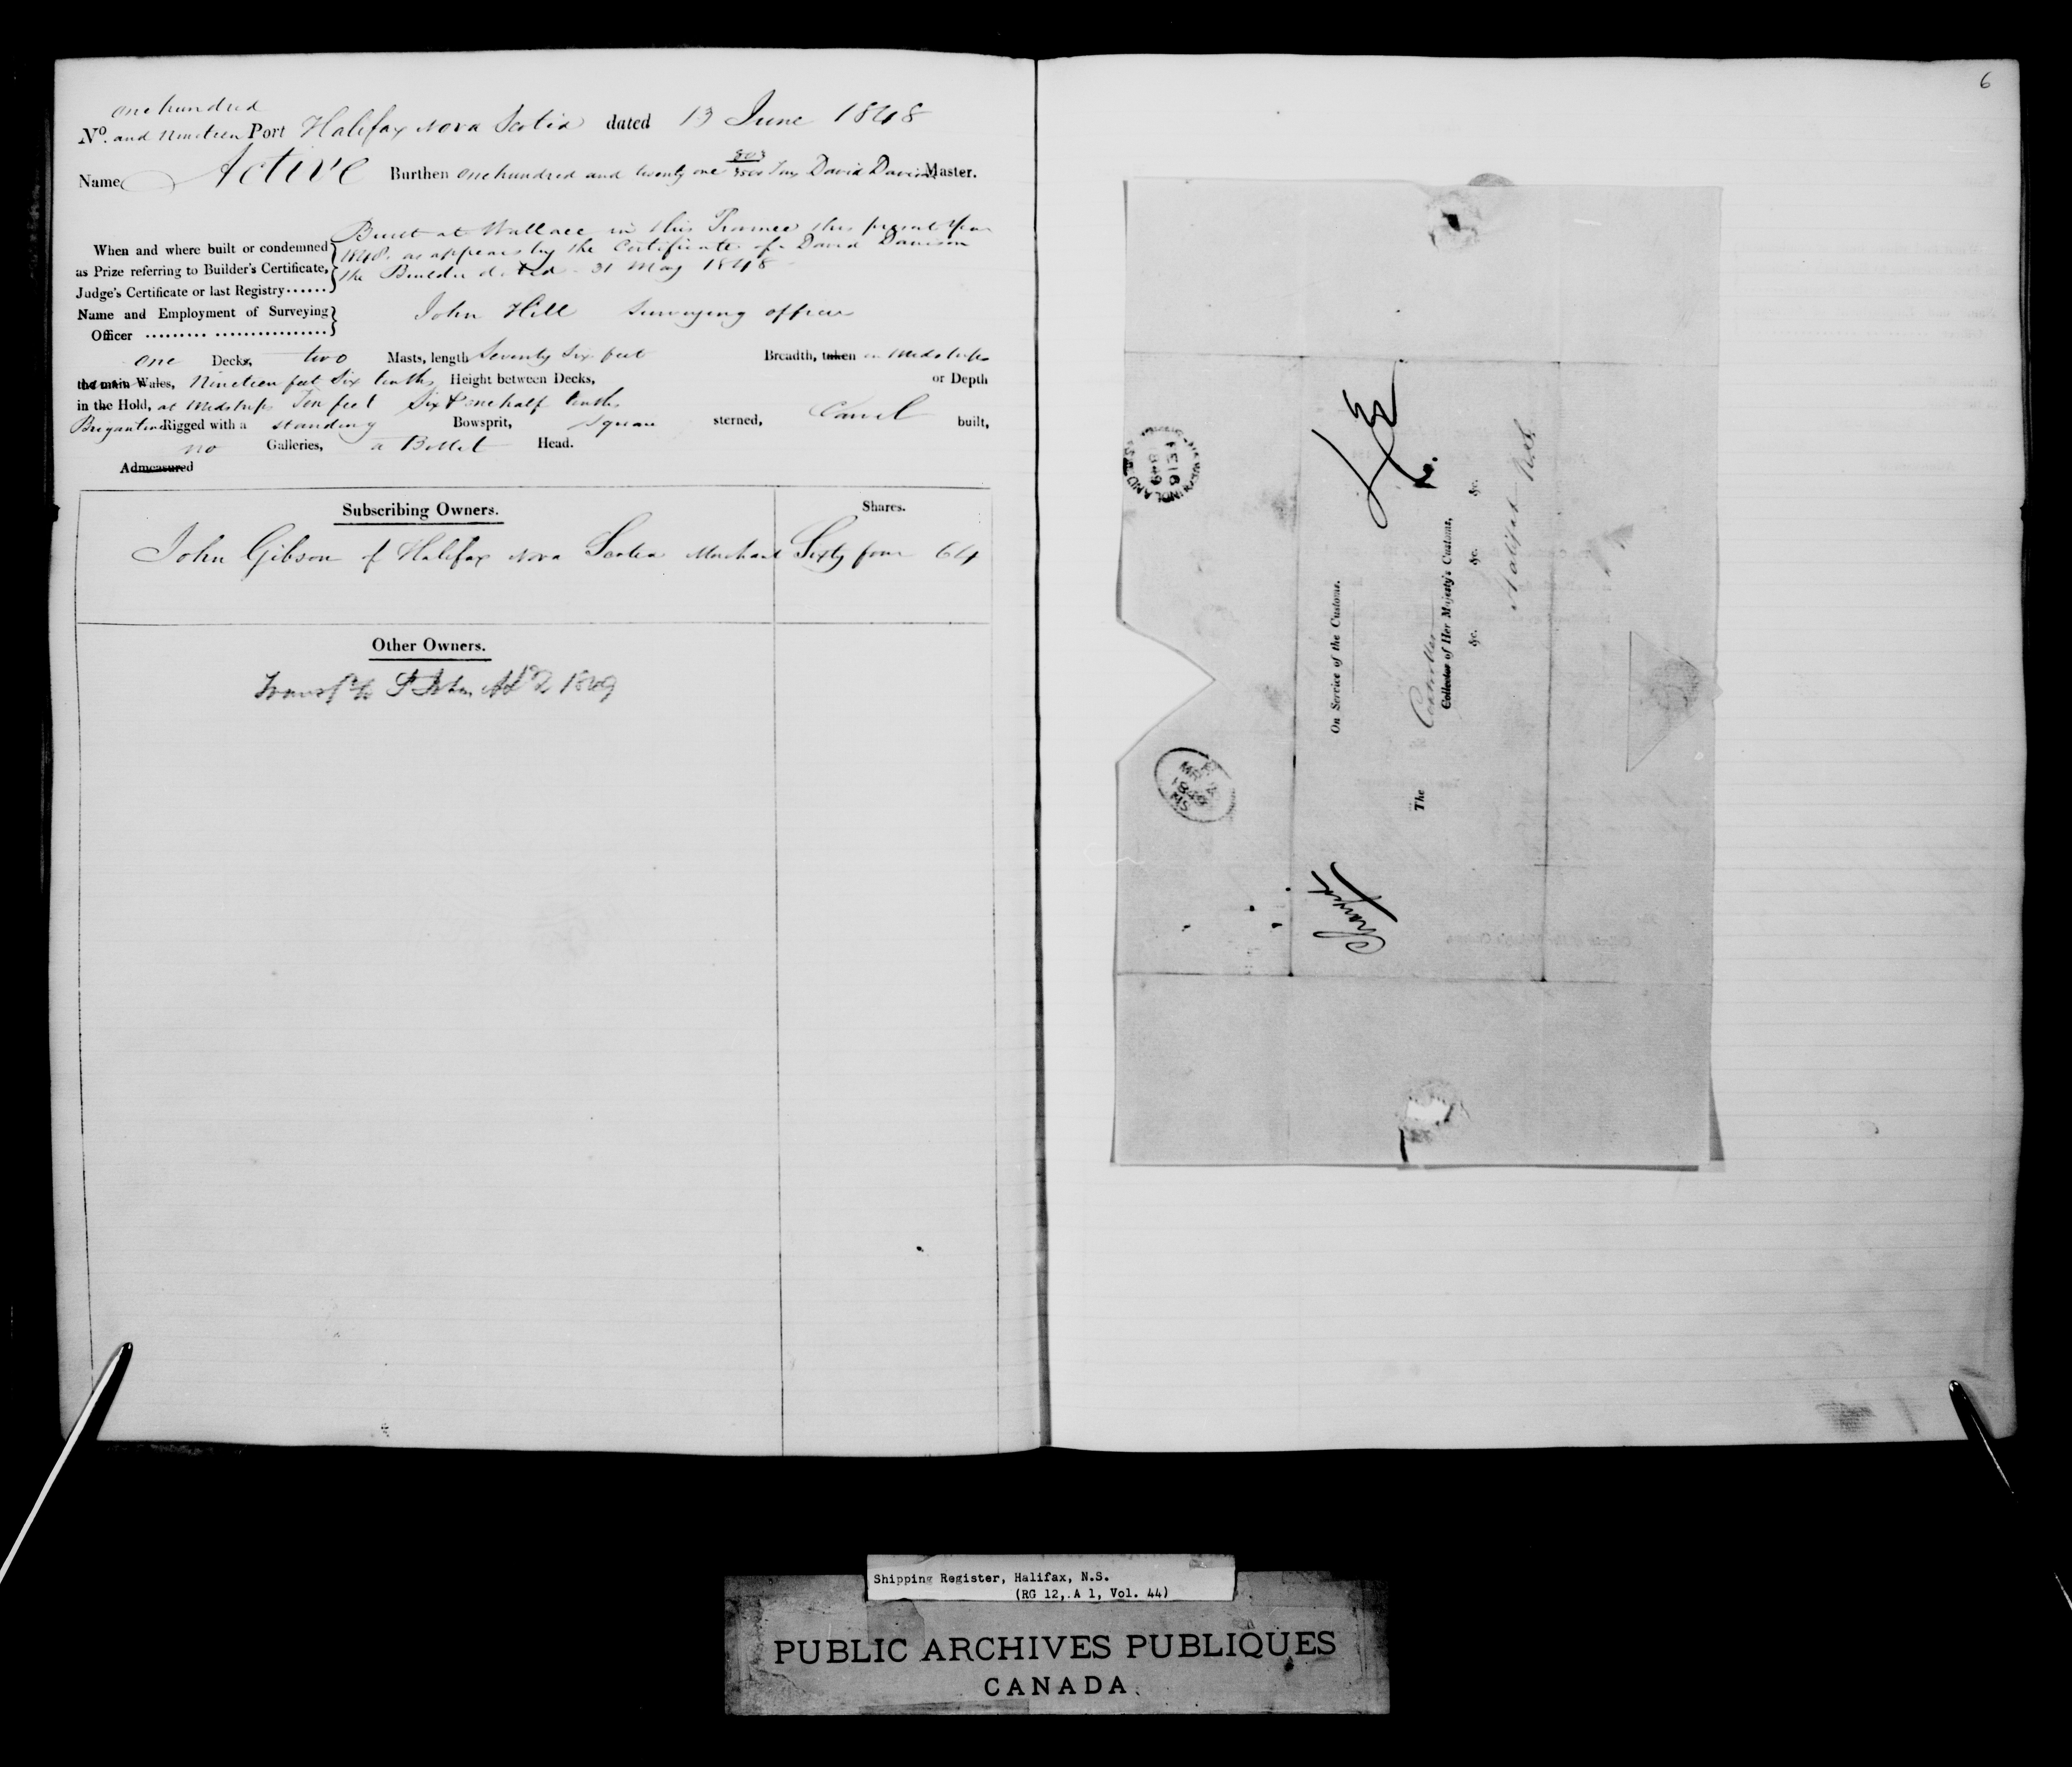 one hundred
No. and Nineteen Port Halifax Nova Scotia dated 13 June 1848
Name Active Burthen one hundred and twenty one Tons David Davison Master.
Built at Wallace in this Province this present Year
When and where built or condemned 1848. as appears by the Certificate of David Davison
as Prize referring to Builder's Certificate, the Builder dated 31 May 1848
Judge's Certificate or last Registry......
Name and Employment of Surveying John Hill Surveying officer
Officer ......... ................
one Decks, two Masts, length Seventy Six feet Breadth, taken in Midships
the main Wales, Nineteen feet Six tenths Height between Decks, or Depth
in the Hold, at Midships Ten feet Six & one half tenths
Brigantine Rigged with a standing Bowsprit, Square sterned, Carvel built,
no Galleries, a Billet Head.
Admeasured
Subscribing Owners. Shares.
John Gibson of Halifax Nova Scotia Merchant Sixty four 64
Other Owners.
1849
6
On Service of the Customs.
The Controller
Collector of Her Majesty's Customs,
&c. &c. &c.
Halifax N.S.
Shipping Register, Halifax, N.S.
(RG 12, A 1, Vol. 44)
PUBLIC ARCHIVES PUBLIQUES
CANADA